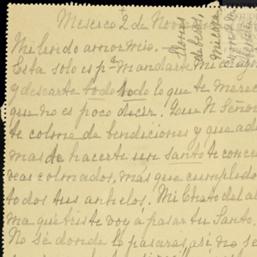 Meserco 2 de Nov
Mi lindo amor mio.
Esta solo es pª mandarte mi
y desearte todo todo lo que te mereces
que no es poco decir. Que N. Señor
te colme de bendiciones y que ademas
mas de hacerte un santo te conce
veas colmados, mas que cumplido
todos tus anhelos. Mi Chato del al
ma que triste voy a pasar tu Santo,
No sé donde lo pasaras, así no se